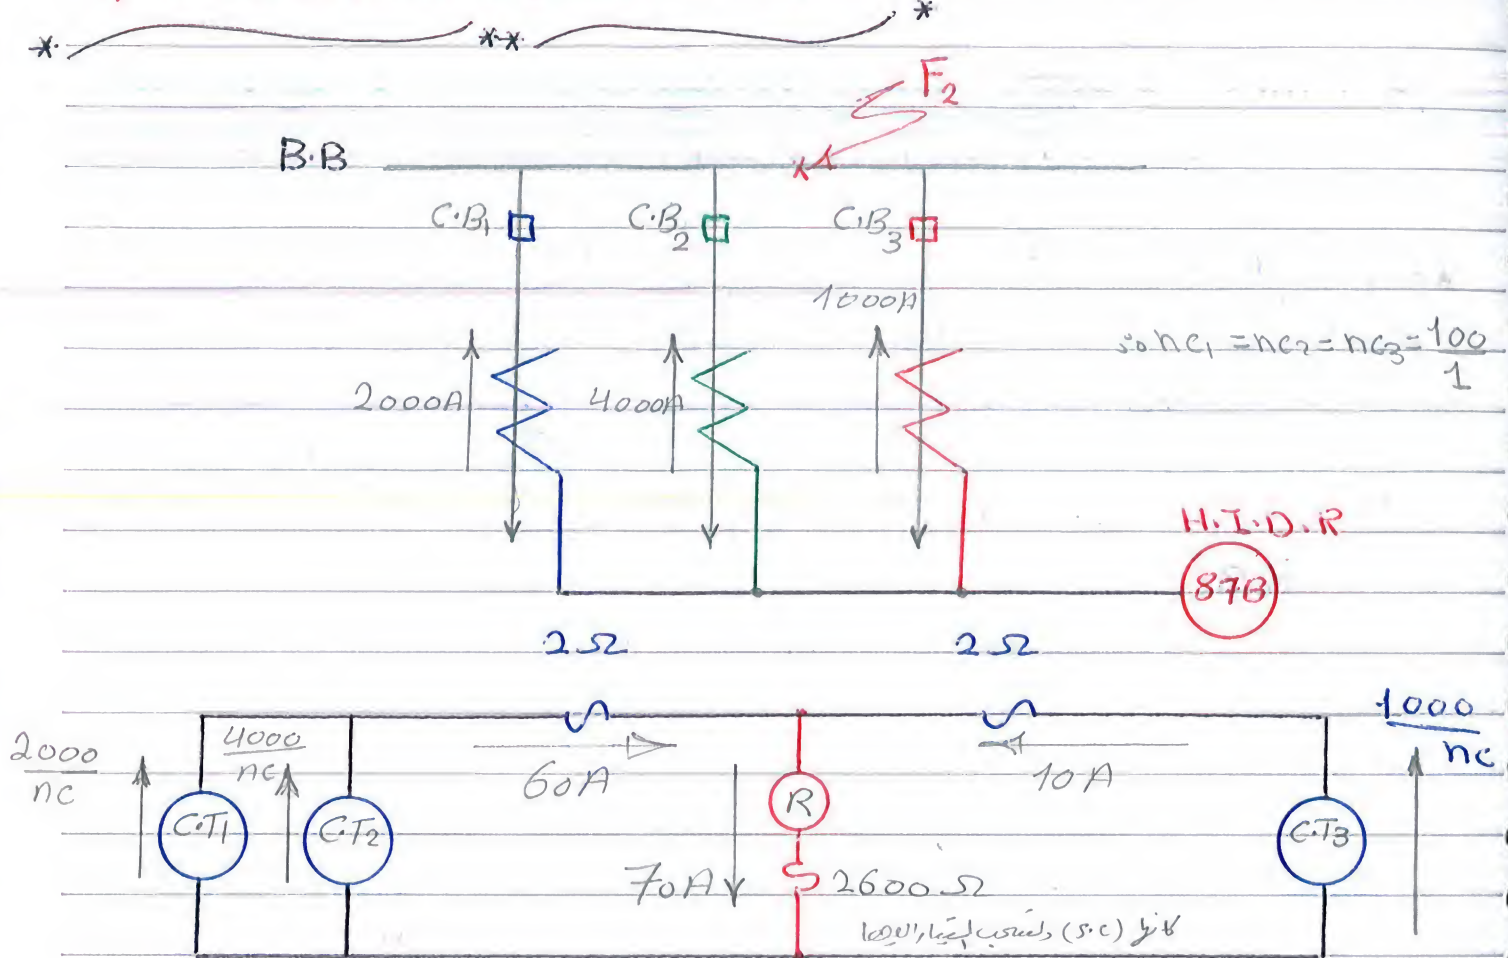 F2
B.B
C.B1 C.B2 C.B3
1000A
nc1 = nc2 = nc3 = 100/1
2000A 4000A
H.I.D.R
87B
2Ω 2Ω
2000/nc 4000/nc 1000/nc
60A 10A
C.T1 C.T2 R C.T3
70A 2600Ω
(S.C)